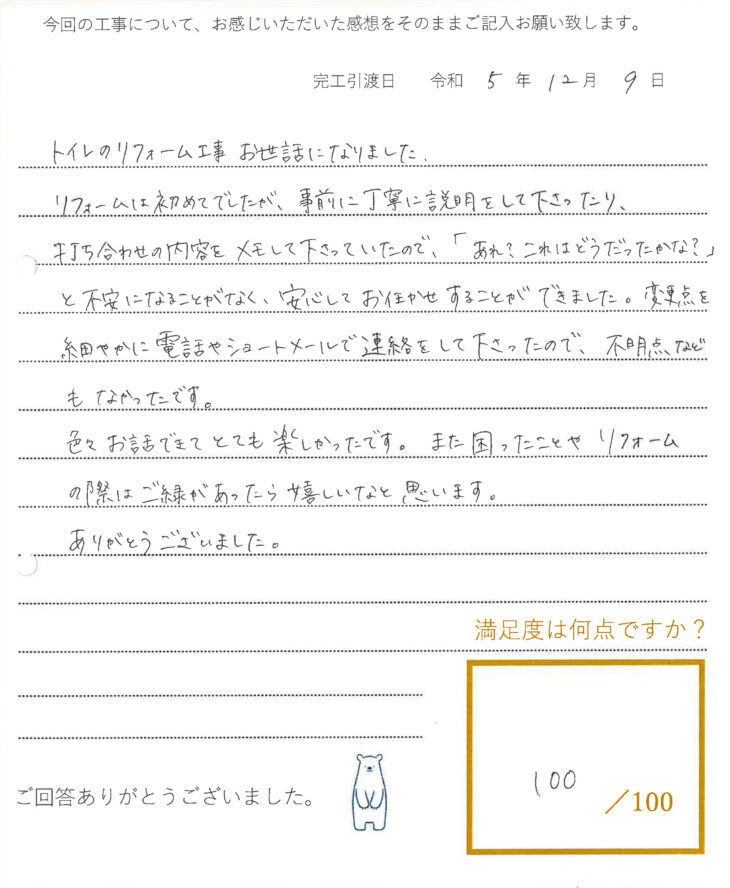 今回の工事について、お感じいただいた感想をそのままご記入お願い致します。
完工引渡日 令和 5 年 12 月 9 日
トイレのリフォーム工事 お世話になりました.
リフォームは初めてでしたが、事前に丁寧に説明をして下さったり、
打ち合わせの内容をメモして下さっていたので、「あれ?これはどうだったかな?」
と不安になることがなく、安心してお任せすることができました。変更点を
細やかに電話やショートメールで連絡をして下さったので、不明点など
もなかったです。
色々お話できてとても楽しかったです。また困ったことやリフォーム
の際はご縁があったら嬉しいなと思います。
ありがとうございました。
満足度は何点ですか？
100 ／100
ご回答ありがとうございました。